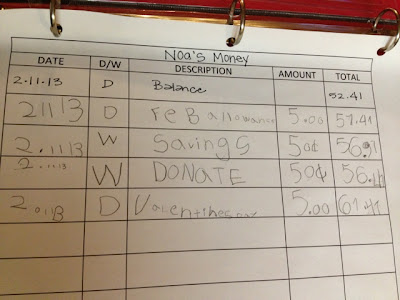 Noa's Money
DATE D/W DESCRIPTION AMOUNT TOTAL
2.11.13 D Balance 52.41
2 11 13 D FeB allowance 5.00 57.41
2.11.13 W Savings 50¢ 56.91
2.11.13 W DONATE 50¢ 56.41
D 5.00 61.41